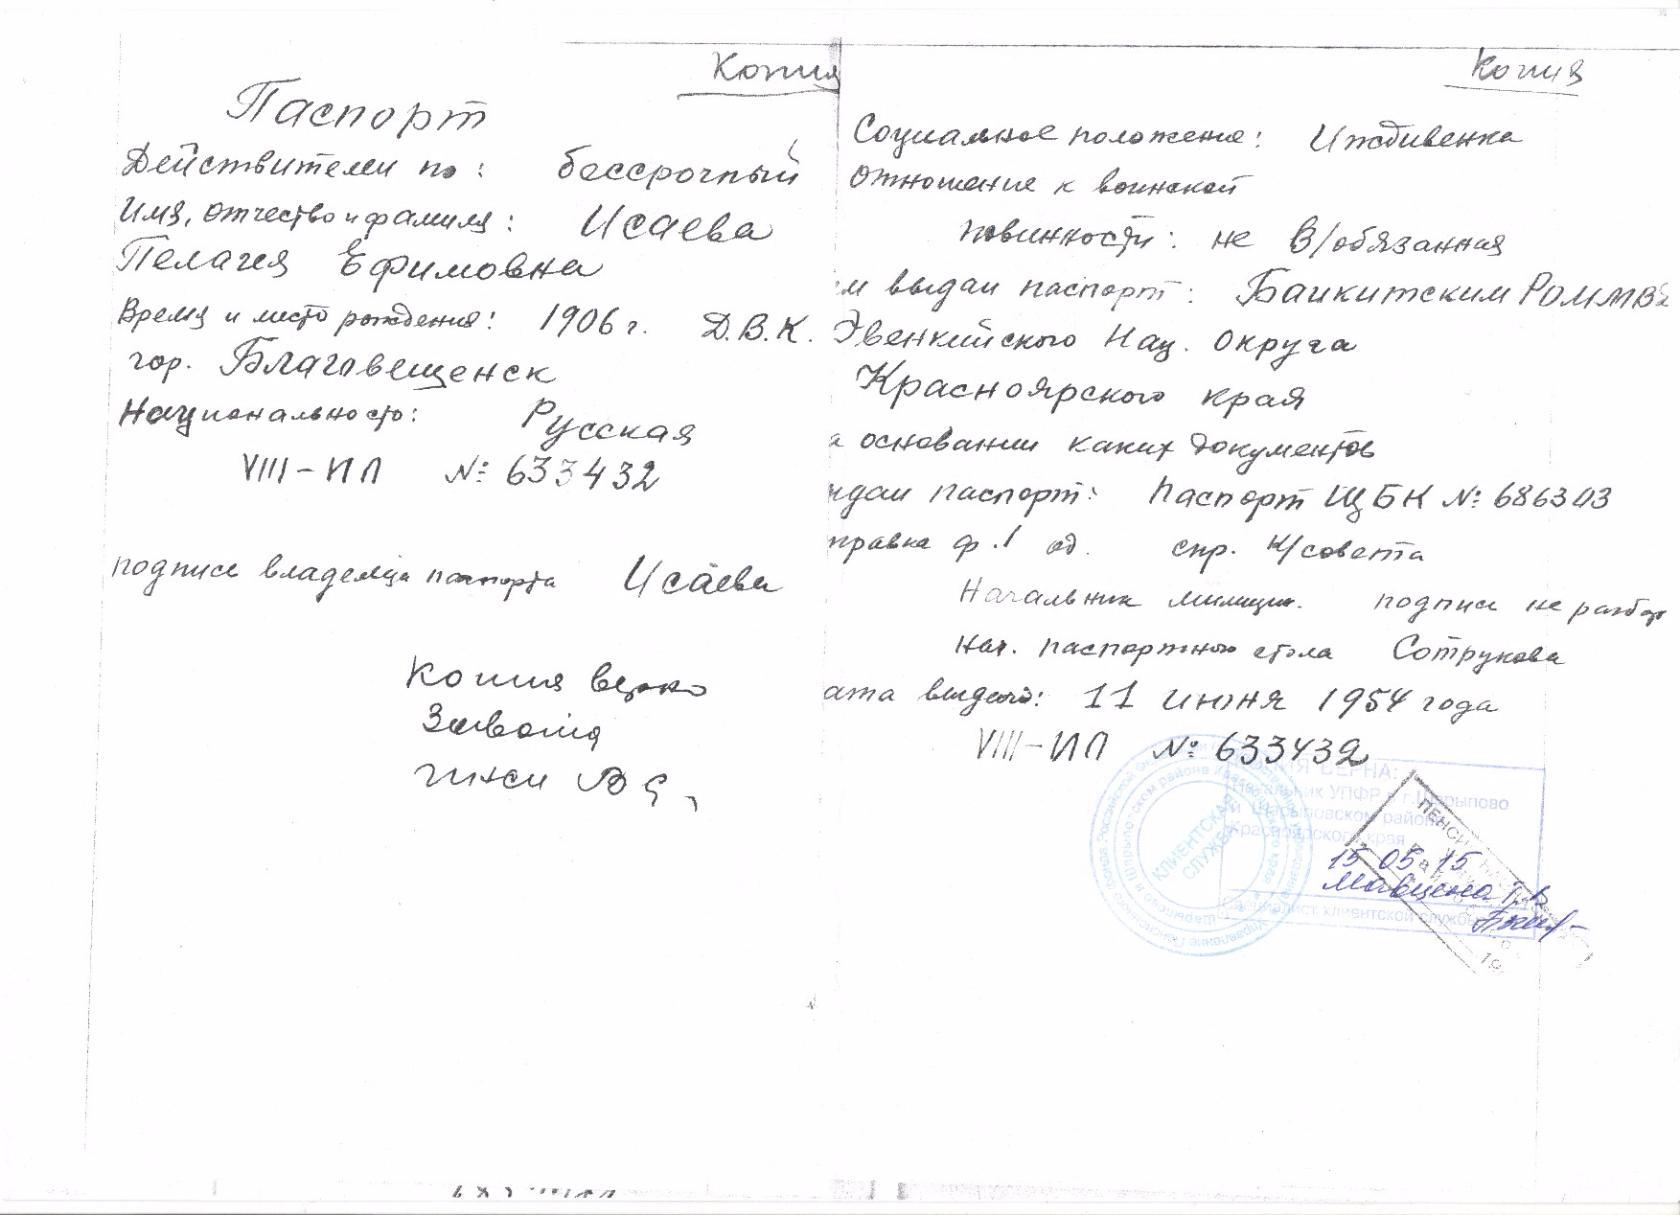 Копия
Паспорт
Действителен по: бессрочный
Имя, отчество и фамилия: Исаева
Пелагея Ефимовна
Время и место рождения: 1906 г. Д.В.К.
гор. Благовещенск
Национальность: Русская
VIII-ИЛ № 633432
подпись владельца паспорта Исаева
Копия верна
Копия
Социальное положение: Иждивенка
Отношение к воинской
повинности: не в/обязанная
ем выдан паспорт: Байкитским РОММВД
Эвенкийского Нац. округа
Красноярского края
а основании каких документов
ыдан паспорт: Паспорт ЩБК № 686303
правка ф.1 спр. К/совета
Начальник милиции подпись не разбор
Нач. паспортного стола Сотрукова
ата выдачи: 11 июня 1954 года
VIII-ИЛ № 633432
КОПИЯ ВЕРНА:
Начальник УПФР в г.Шарыпово
и Шарыповском районе
Красноярского края
15 05 15
Специалист клиентской службы
КЛИЕНТСКАЯ
СЛУЖБА